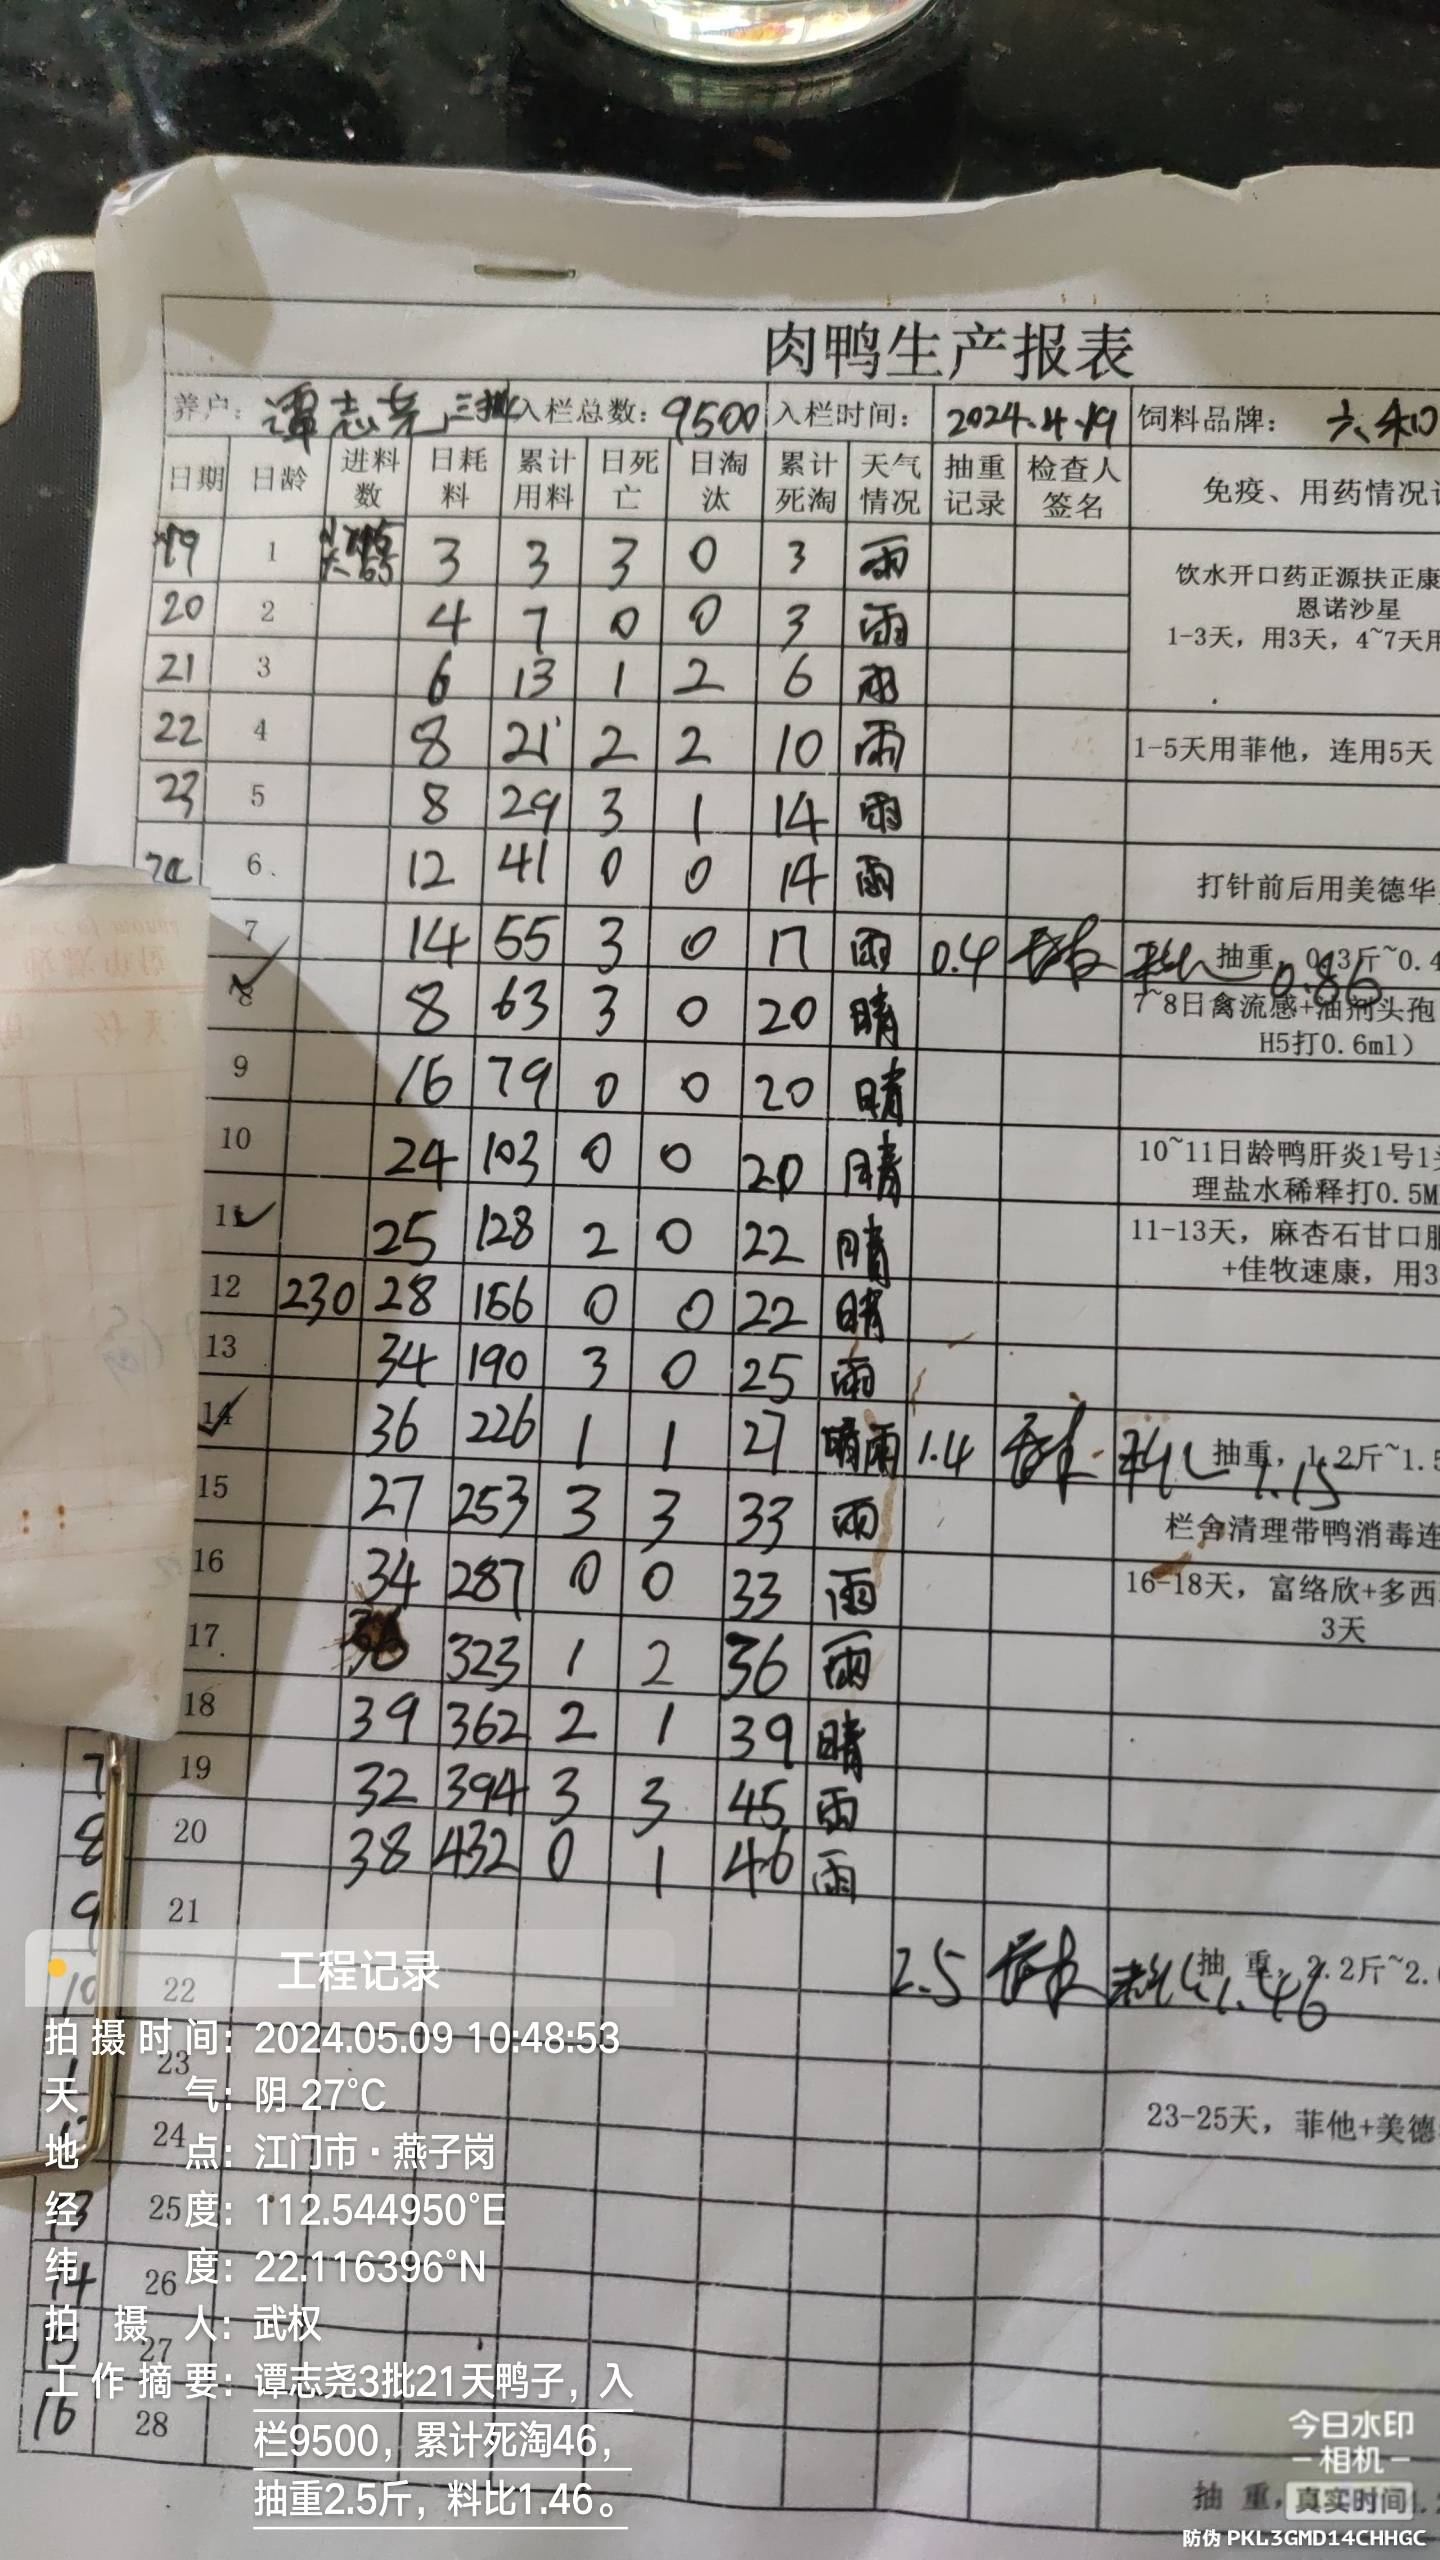 肉鸭生产报表
养户: 谭志尧 三批 入栏总数: 9500 入栏时间: 2024.4.19 饲料品牌: 六和
日期 日龄 进料数 日耗料 累计用料 日死亡 日淘汰 累计死淘 天气情况 抽重记录 检查人签名 免疫、用药情况
19 1 3 3 3 0 3 雨
饮水开口药正源扶正康
恩诺沙星
20 2 4 7 0 0 3 雨
1-3天，用3天，4~7天用
21 3 6 13 1 2 6 雨
22 4 8 21 2 2 10 雨 1-5天用菲他，连用5天
23 5 8 29 3 1 14 雨
24 6 12 41 0 0 14 雨 打针前后用美德华
7 14 55 3 0 17 雨 0.4 抽重，0.3斤~0.4 0.86
8 8 63 3 0 20 晴 7~8日禽流感+油剂头孢
H5打0.6ml）
9 16 79 0 0 20 晴
10 24 103 0 0 20 晴 10~11日龄鸭肝炎1号1
理盐水稀释打0.5M
11 25 128 2 0 22 晴 11-13天，麻杏石甘口服
+佳牧速康，用3
12 230 28 156 0 0 22 晴
13 34 190 3 0 25 雨
14 36 226 1 1 27 晴雨 1.4 抽重，1.2斤~1.5 1.15
15 27 253 3 3 33 雨 栏舍清理带鸭消毒连
16 34 287 0 0 33 雨 16-18天，富络欣+多西
3天
17 36 323 1 2 36 雨
18 39 362 2 1 39 晴
7 19 32 394 3 3 45 雨
8 20 38 432 0 1 46 雨
9 21
2.5 抽 重，2.2斤~2. 1.46
10 22
23
23-25天，菲他+美德
24
25
14 26
27
16 28
抽 重，
工程记录
拍摄时间: 2024.05.09 10:48:53
天气: 阴 27°C
地点: 江门市·燕子岗
经度: 112.544950°E
纬度: 22.116396°N
拍摄人: 武权
工作摘要: 谭志尧3批21天鸭子，入
栏9500，累计死淘46，
抽重2.5斤，料比1.46。
今日水印
-相机-
真实时间
防伪 PKL3GMD14CHHGC